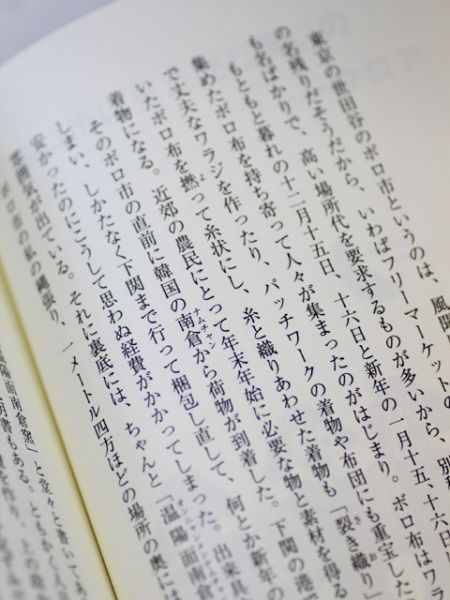 東京の世田谷のボロ市というのは、風
の名残りだそうだから、いわばフリーマーケットの
も名ばかりで、高い場所代を要求するものが多いから、別
もともと暮れの十二月十五日、十六日と新年の一月十五、十六日
集めたボロ布を持ち寄って人々が集まったのがはじまり。ボロ布はワラ
で丈夫なワラジを作ったり、パッチワークの着物や布団にも重宝した
いたボロ布を撚って糸状にし、糸と織りあわせた着物も「裂き織り」
着物になる。近郊の農民にとって年末年始に必要な物と素材を得る
そのボロ市の直前に韓国の南倉から荷物が到着した。下関の港で
しまい、しかたなく下関まで行って梱包し直して、何とか新年の
安かったのにこうして思わぬ経費がかかってしまった。出来具
雰囲気が出ている。それに裏底には、ちゃんと「温陽面南倉
ボロ市の私の縄張り、一メートル四方ほどの場所の奥には
温陽面南倉窯」と堂々と書いてあ
明書もある。ともかく人
を作り、上の